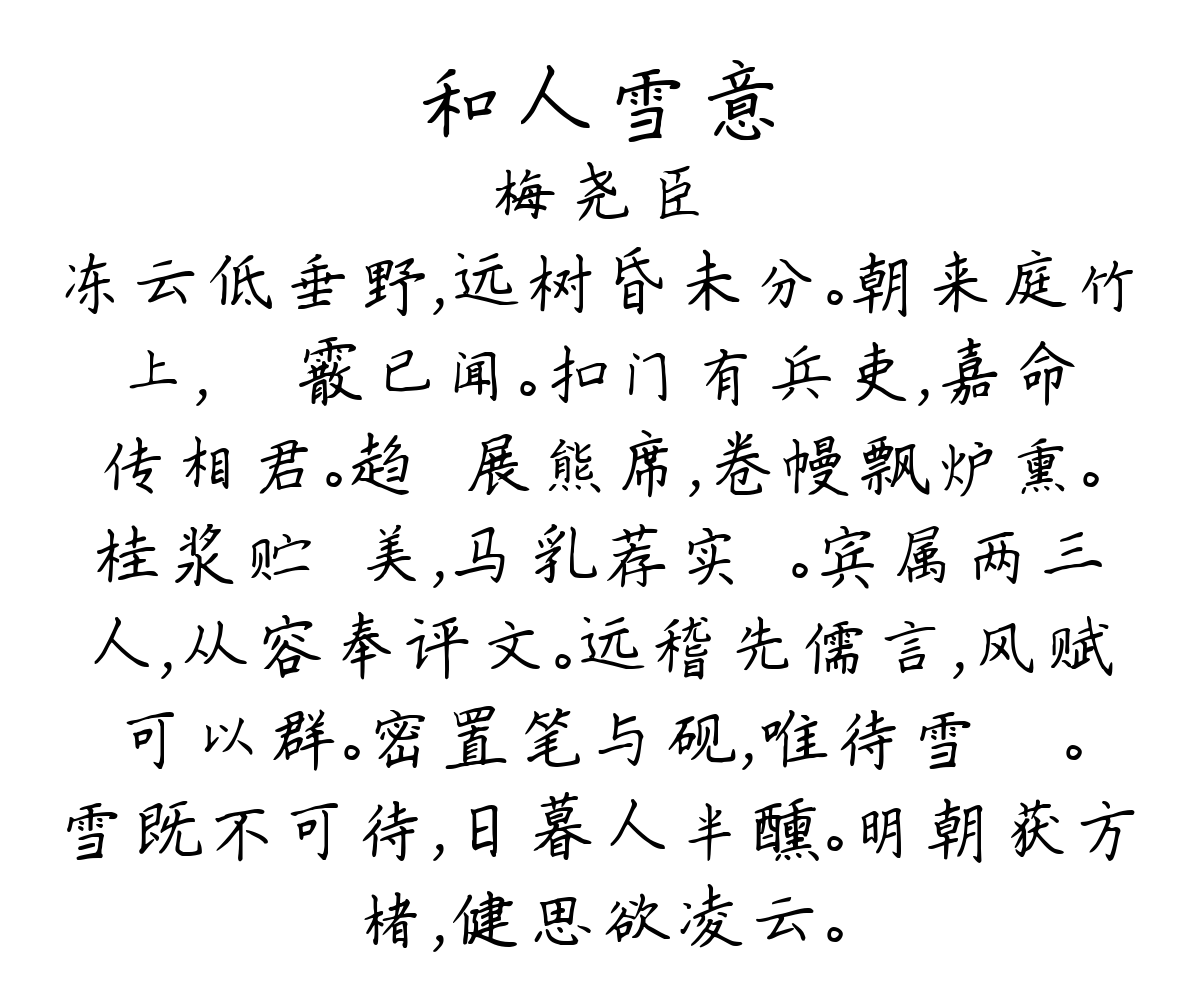 和人雪意
梅尧臣
冻云低垂野,远树昏未分。朝来庭竹
上, 霰已闻。扣门有兵吏,嘉命
传相君。趋 展熊席,卷幔飘炉熏。
桂浆贮 美,马乳荐实 。宾属两三
人,从容奉评文。远稽先儒言,风赋
可以群。密置笔与砚,唯待雪 。
雪既不可待,日暮人半醺。明朝获方
楮,健思欲凌云。